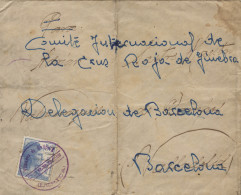 Comité Internacional de
la Cruz Roja de Ginebra
Delegacion de Barcelona
Barcelona